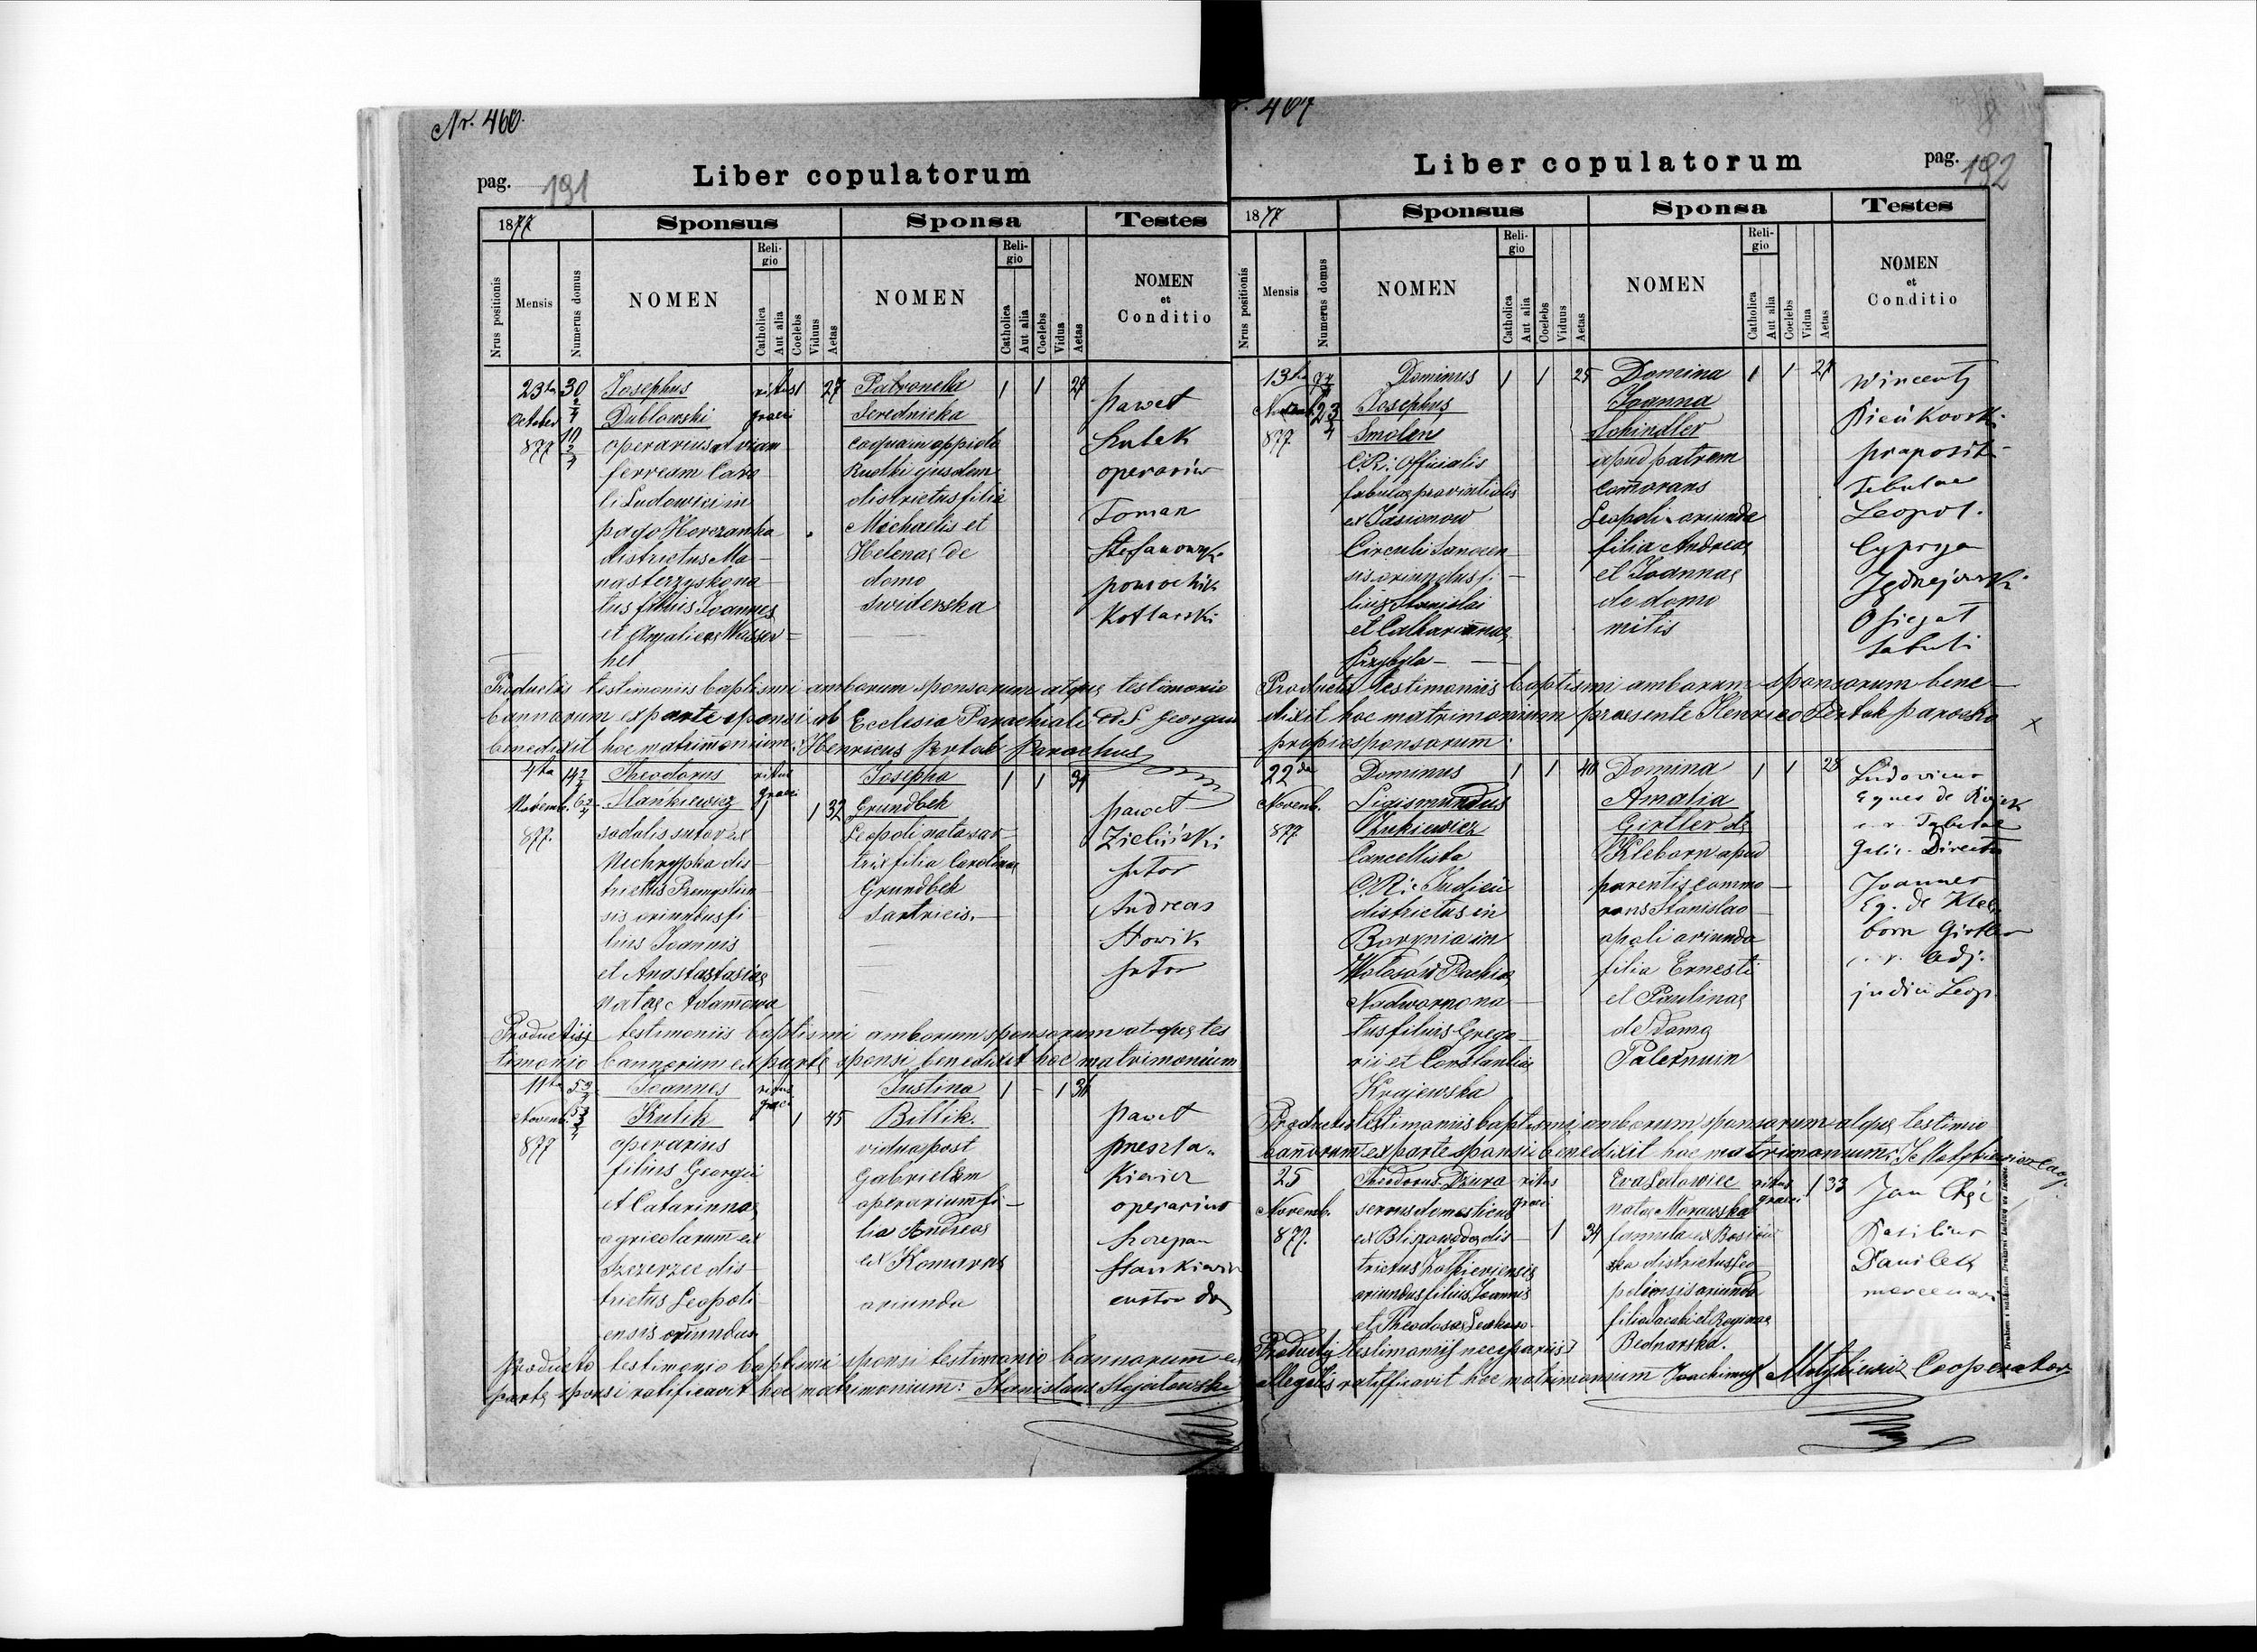 Nr. 466.
pag. 191
Liber copulatorum
1877
Sponsus
Sponsa
Testes
Nrus positionis
Mensis
Numerus domus
NOMEN
Reli-
gio
Catholica
Aut alia
Coelebs
Viduus
Aetas
NOMEN
Reli-
gio
Catholica
Aut alia
Coelebs
Vidua
Aetas
NOMEN
et
Conditio
23tia
October
877
30
2/4
10
2/4
Josephus
Dublowski
operarius ad viam
ferream Caro
li Ludowici in
pago Horozanka
districtus Mo-
nasterzyska na
tus filius Joannes
et Amaliae Wasser=
hel
ritus
graeci
1
27
Patronella
Serednicka
coqua in oppido
Rudki ejusdem
districtus filia
Michaelis et
Helenae de
domo
Swiderska
1
1
24
Paweł
Kulek
operarius
Toman
Stefanowyk
pomochik
Kotlarski
Productis testimoniis baptismi amborum sponsorum atque testimonio
bannorum ex parte sponsi ab Ecclesia Parochiali ad S. Georgium
benedixit hoc matrimonium: Henricus Pertak Parochus
4ta
Novemb.
877.
14 2/4
62/4
Theodorus
Stańkiewicz
sodalis sutor ex
Nechrypka dis-
trictus Premyslien
sis oriundus fi
lius Joannis
et Anastasiae
natae Adamowa
ritus
graeci
1
1
32
Josepha
Grundbek
Leopoli nata sar-
trix filia Carolinae
Grundbek
Sartricis.
1
1
31
Paweł
Zieliński
sutor
Andreas
Nowik
sutor
Productis testimoniis baptismi amborum sponsorum atque tes
timonio bannorum ex parte sponsi benedixit hoc matrimonium
11ta
Novemb.
877
Joannes
Kulik
operarius
filius Georgii
et Catarinnae
agricolarum ex
Szczerzec dis-
trictus Leopoli-
ensis oriundus
ritus
graeci
1
45
Justina
Billik.
vidua post
Gabrielem
operarium fi-
lia Andreae
ex Komarno
oriunda
1
1
36
Paweł
operarius
Szczepan
Stankiewicz
custos
Producto testimonio baptismi sponsi testimonio bannorum ex
parte sponsi ratificavit hoc matrimonium: Stanislaus Stojałowski
467
Liber copulatorum
pag. 192
1877
Sponsus
Sponsa
Testes
Nrus positionis
Mensis
Numerus domus
NOMEN
Reli-
gio
Catholica
Aut alia
Coelebs
Viduus
Aetas
NOMEN
Reli-
gio
Catholica
Aut alia
Coelebs
Vidua
Aetas
NOMEN
et
Conditio
13tia
877
Dominus
Josephus
Smoleń
C.R. Officialis
tabulae provintialis
ex Jasionow
Circuli Sanocen-
sis oriundus fi-
lius Stanislai
et Catharinnae
Przybyla
1
1
25
Domina
Joanna
Schindler
apud patrem
comorans
Leopoli oriunda
filia Andreae
et Joannae
de domo
mitis
1
1
21
Wincenty
Bieńkowski
praposit
Tabulae
Leopol.
Cypryan
Jędrzejowski
Tabuli
Productis testimoniis baptismi amborum sponsorum bene-
dixit hoc matrimonium praesente Henrico Pertak parocho
proprio sponsorum:
x
22da
Novemb.
877.
Dominus
Sigismundus
Żukiewicz
Cancellista
C.R. Judicii
districtus in
Borynia in
Wołosów
Nadworno na-
tus filius Grego-
rii et Constantiae
Krajewska
1
1
40
Domina
Amalia
Girtler de
Kleborn apud
parentis commo-
rans Stanislao-
opoli oriunda
filia Ernesti
et Paulinae
de domo
1
1
28
Ludovicus
Eques de
c. r. Tabulae
Galic. Director
Joannes
Eq. de Kle-
born Girtler
c. r. Adj.
judicii Leop.
Productis testimoniis baptismi amborum sponsorum atque testimio
bannorum ex parte sponsi benedixit hoc matrimonium:
25
Novemb.
877.
Theodorus Dziura
servus domesticus
districtus Żółkieviensis
oriundus filius Joannis
et Theodosiae
ritus
graeci
1
34
Eva Ledowiec
nata Morawska
famula ex
districtus Leo
poliensis oriunda
filia Jacobi et Reginae
Bednarska.
ritus
graeci
1
33
Jan
Basilius
Daniłek
mercenari
Productis testimoniis necessariis
allegatis ratifficavit hoc matrimonium Joachimus Motykiewicz Cooperator